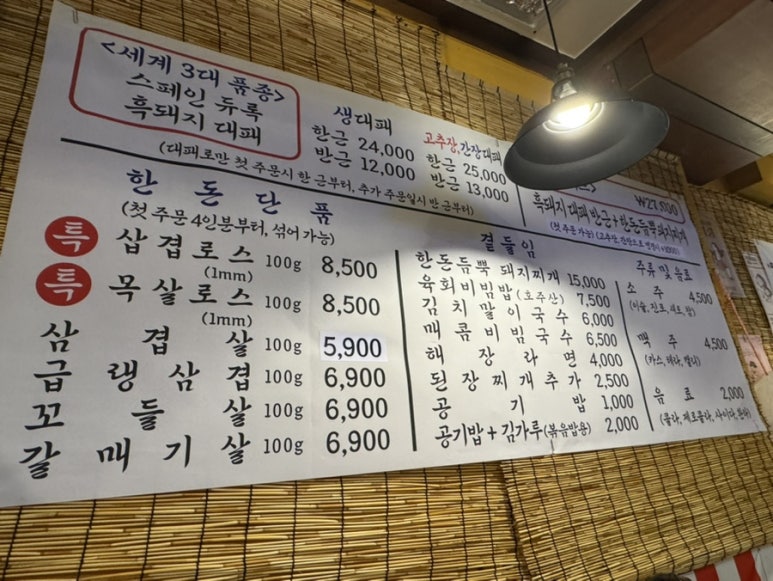 <세계 3대 품종>
스페인 듀록
흑돼지 대패
생대패
한근 24,000
반근 12,000
고추장,간장대패
한근 25,000
반근 13,000
(대패로만 첫 주문시 한 근부터, 추가 주문일시 반 근부터)
₩27,500
흑돼지 대패 반근+한돈듬뿍 돼지찌개
한 돈 단 품
(첫 주문 4인분부터, 섞어 가능)
특 삼겹로스 100g 8,500
(1mm)
특 목살로스 100g 8,500
(1mm)
삼겹살 100g 5,900
급랭삼겹 100g 6,900
꼬들살 100g 6,900
갈매기살 100g 6,900
곁들임
한돈듬뿍 돼지찌개 15,000
육회비빔밥(호주산) 7,500
김치말이국수 6,000
매콤비빔국수 6,500
해장라면 4,000
된장찌개추가 2,500
공기밥 1,000
공기밥+김가루(볶음밥용) 2,000
주류 및 음료
소주 4,500
(이슬, 진로, 새로, 참)
맥주 4,500
(카스, 테라, 켈리)
음료 2,000
(콜라, 제로콜라, 사이다, 환타)